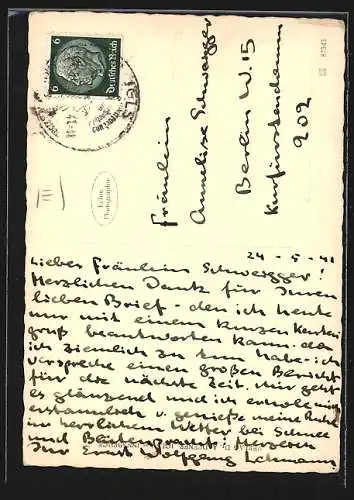 6 Deutsches Reich 6
IGLS
Echte
Photographie
87543
Fräulein
Annelise Schwegger
Berlin W. 15
Kurfürstendamm
202
24-5-41
Lieber Fräulein Schwegger!
Herzlichen Dank für Ihren
lieben Brief - den ich heute
nur mit einem kurzen Karten
gruß beantworten kann - da
ich ziemlich zu tun habe - ich
verspreche einen großen Bericht
für die nächste Zeit. Mir geht
es glänzend und ich erhole mich
erstaunlich u. genieße meine Ruhe
in herrlichem Wetter bei Schnee
und Blütenpracht! Herzlichst
Ihr Ernst Wolfgang